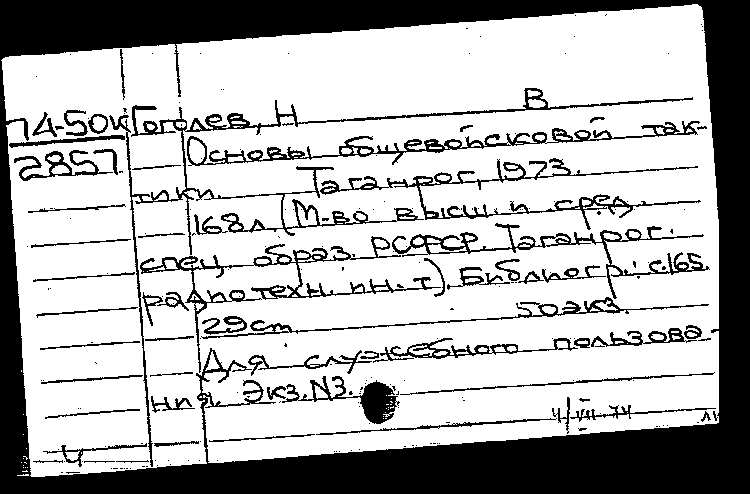 В
74-50к Гоголев, Н
2857 Основы общевойсковой так-
тики. Таганрог, 1973.
168л. (М-во высш. и сред.
спец. образ. РСФСР. Таганрог.
радиотехн. ин-т). Библиогр.: с.165.
29ст. 50экз.
Для служебного пользова-
ния. Экз. N3.
4/VII-74
ч